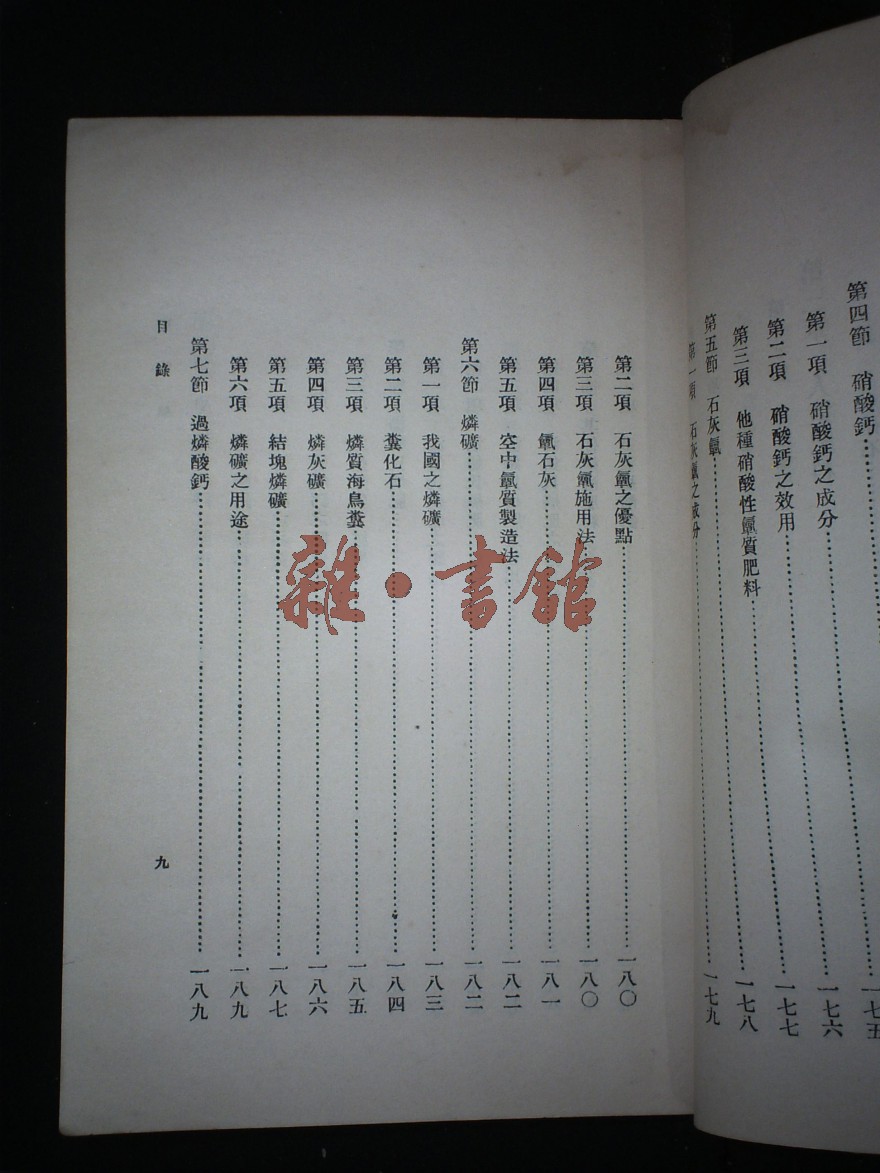 第四節　硝酸鈣……一七五
第一項　硝酸鈣之成分……一七六
第二項　硝酸鈣之效用……一七七
第三項　他種硝酸性氮質肥料……一七八
第五節　石灰氮……一七九
第一項　石灰氮之成分……
第二項　石灰氮之優點……一八〇
第三項　石灰氮施用法……一八〇
第四項　氮石灰……一八一
第五項　空中氮質製造法……一八二
第六節　燐礦……一八二
第一項　我國之燐礦……一八三
第二項　糞化石……一八四
第三項　燐質海鳥糞……一八五
第四項　燐灰礦……一八六
第五項　結塊燐礦……一八七
第六項　燐礦之用途……一八九
第七節　過燐酸鈣……一八九
目錄
九
雜·書館